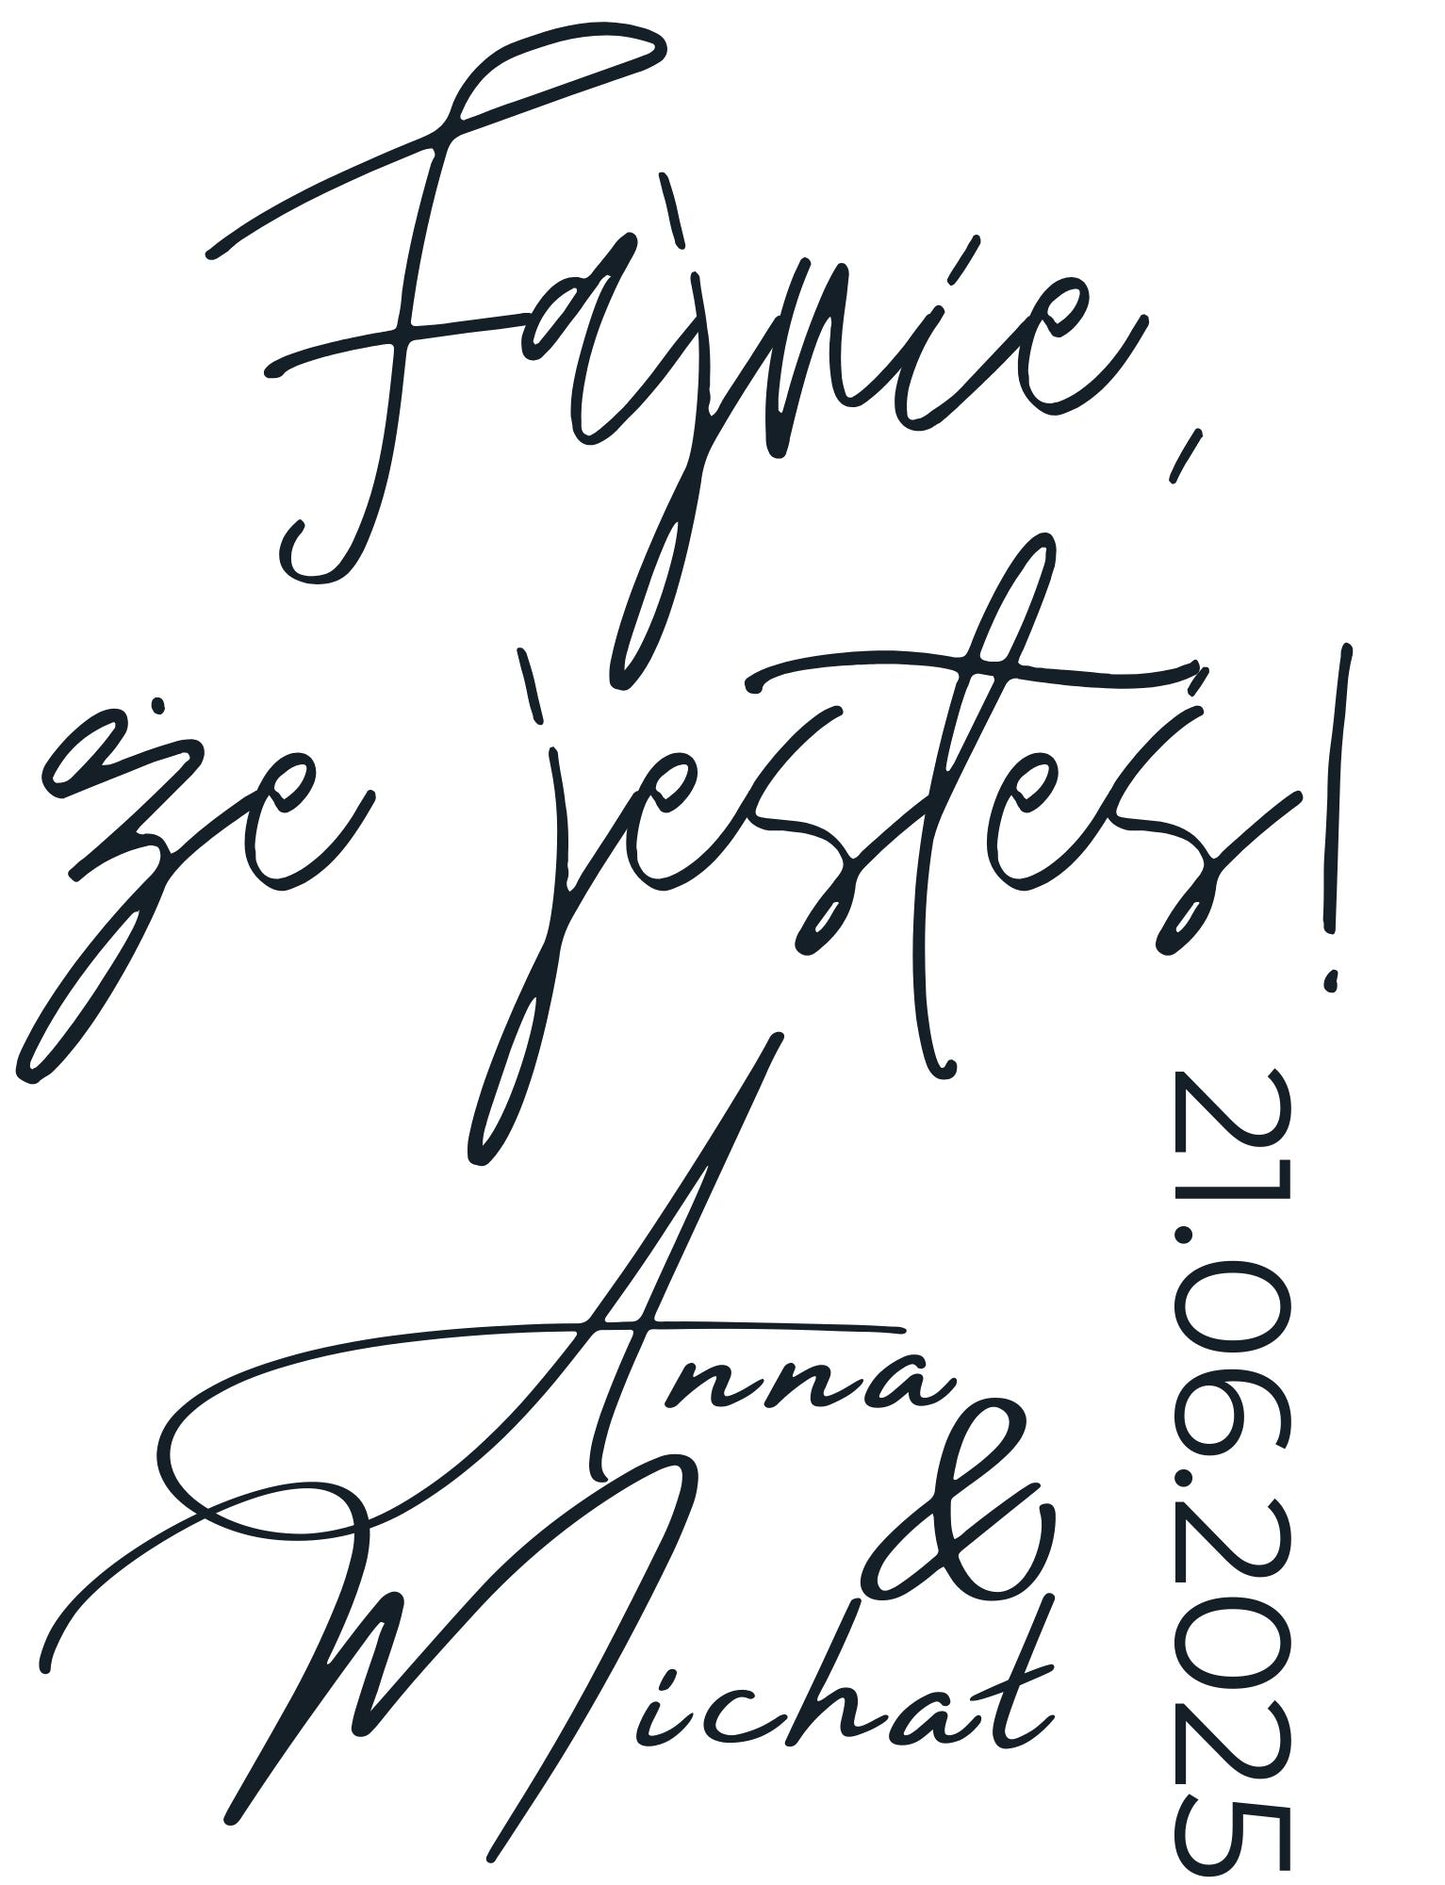 Fajnie,
że jesteś!
Anna
&
Michał
21.06.2025